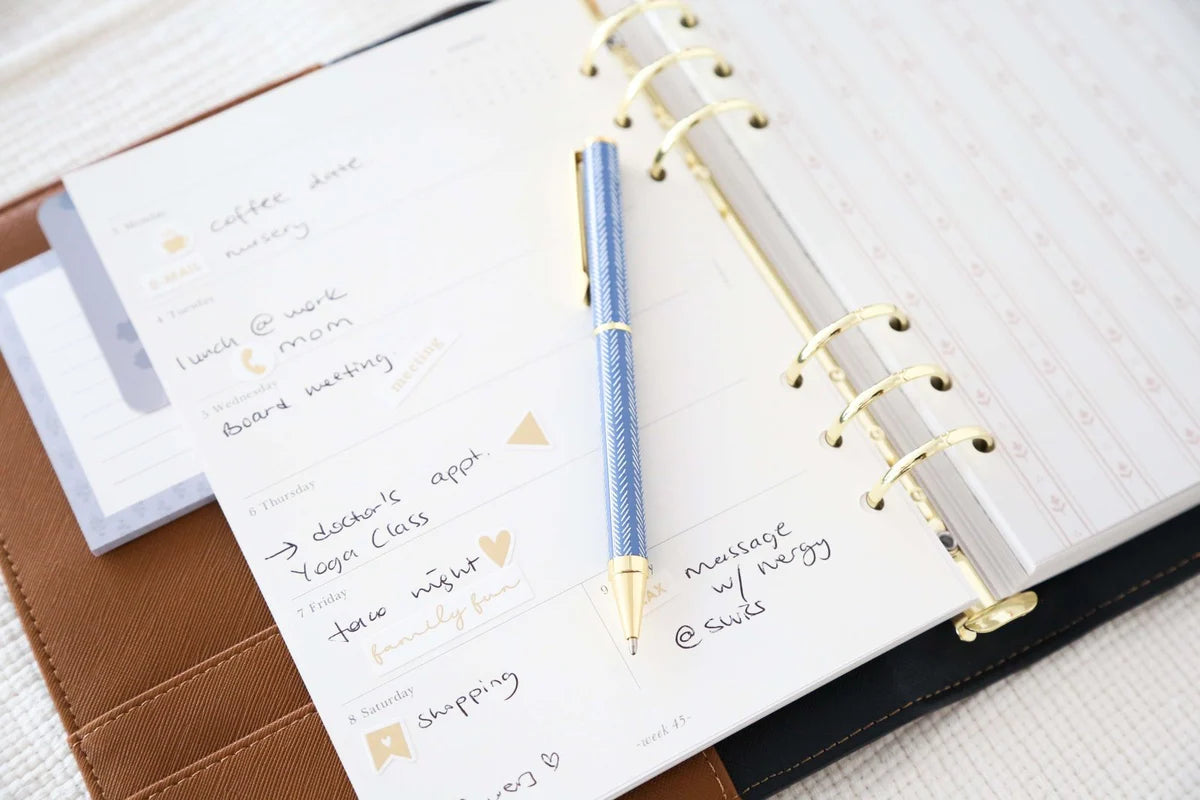 3 Monday
coffee date
nursery
E-MAIL
4 Tuesday
lunch @ work
mom
5 Wednesday
Board meeting.
meeting
6 Thursday
→ doctor's appt.
Yoga Class
7 Friday
taco night
family fun
8 Saturday
shopping
9
AX
massage
w/ mergy
@ swiss
-week 45-